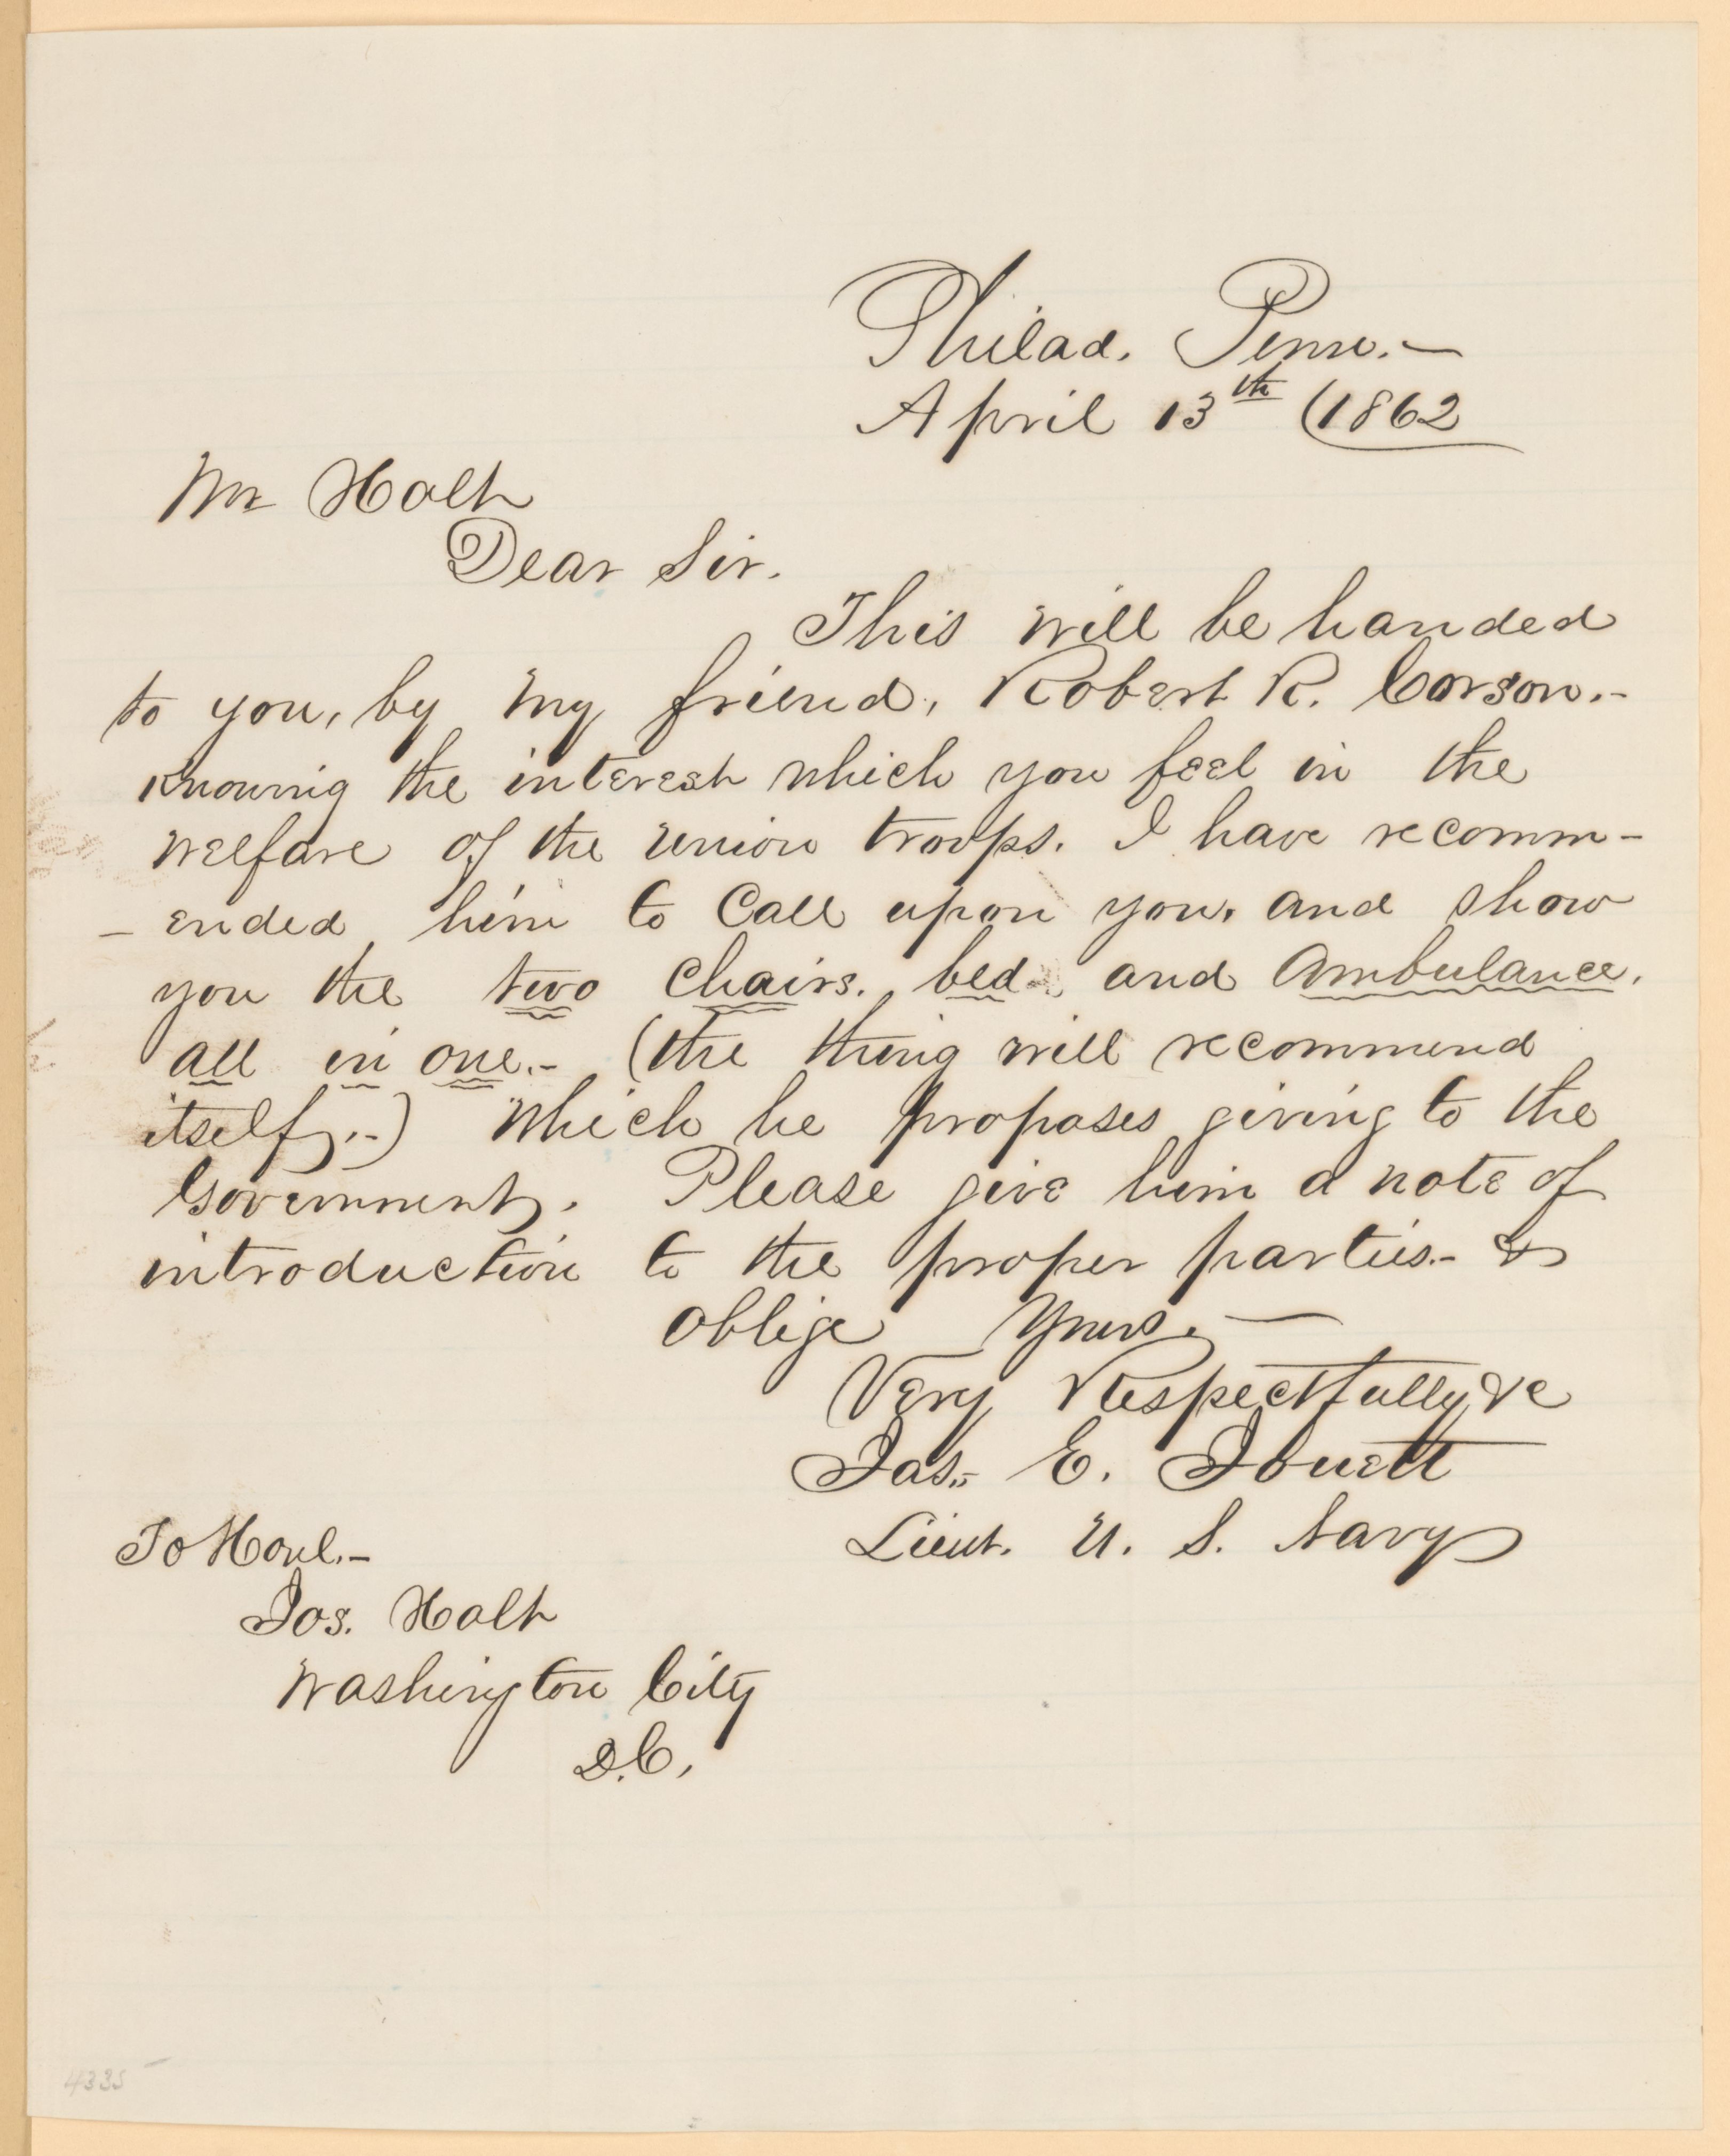 Philad. Penn. —
April 13th (1862
Mr Holt
Dear Sir.
This will be handed
to you, by my friend, Robert R. Corson.-
Knowing the interest which you feel in the
welfare of the union troops. I have recomm-
- ended him to Call upon you, and show
you the two Chairs. bed and Ambulance,
all in one.- (the thing will recommend
itself.-) Which he proposes giving to the
Government. Please give him a note of
introduction to the proper parties.- &
Oblige Yours. —
Very Respectfully &c
Jas. E. Jouett
Lieut. U. S. Navy
To Honl.-
Jos. Holt
Washington City
D.C,
4335